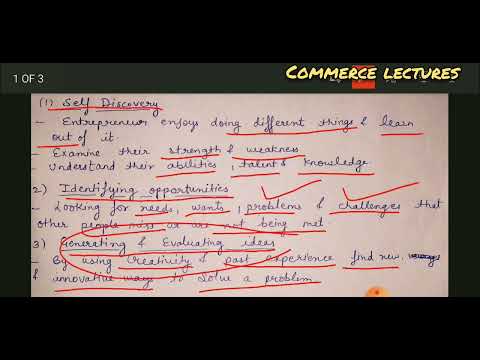 1 OF 3
COMMERCE LECTURES
(1) Self Discovery
- Entrepreneur enjoys doing different things & learn
out of it.
- Examine their strength & weakness
- Understand their abilities, talent & knowledge
2) Identifying opportunities
- Looking for needs, wants, problems & challenges that
other people miss or are not being met.
3) Generating & Evaluating ideas
- By using creativity & past experience find new
& innovative ways to solve a problem